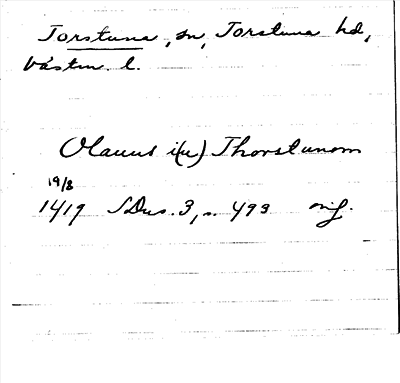 Torstuna, sn, Torstuna hd,
Västm. l.
Olauus i(u) Thorstunom
19/8
1419 SDns. 3, s. 493 orig.